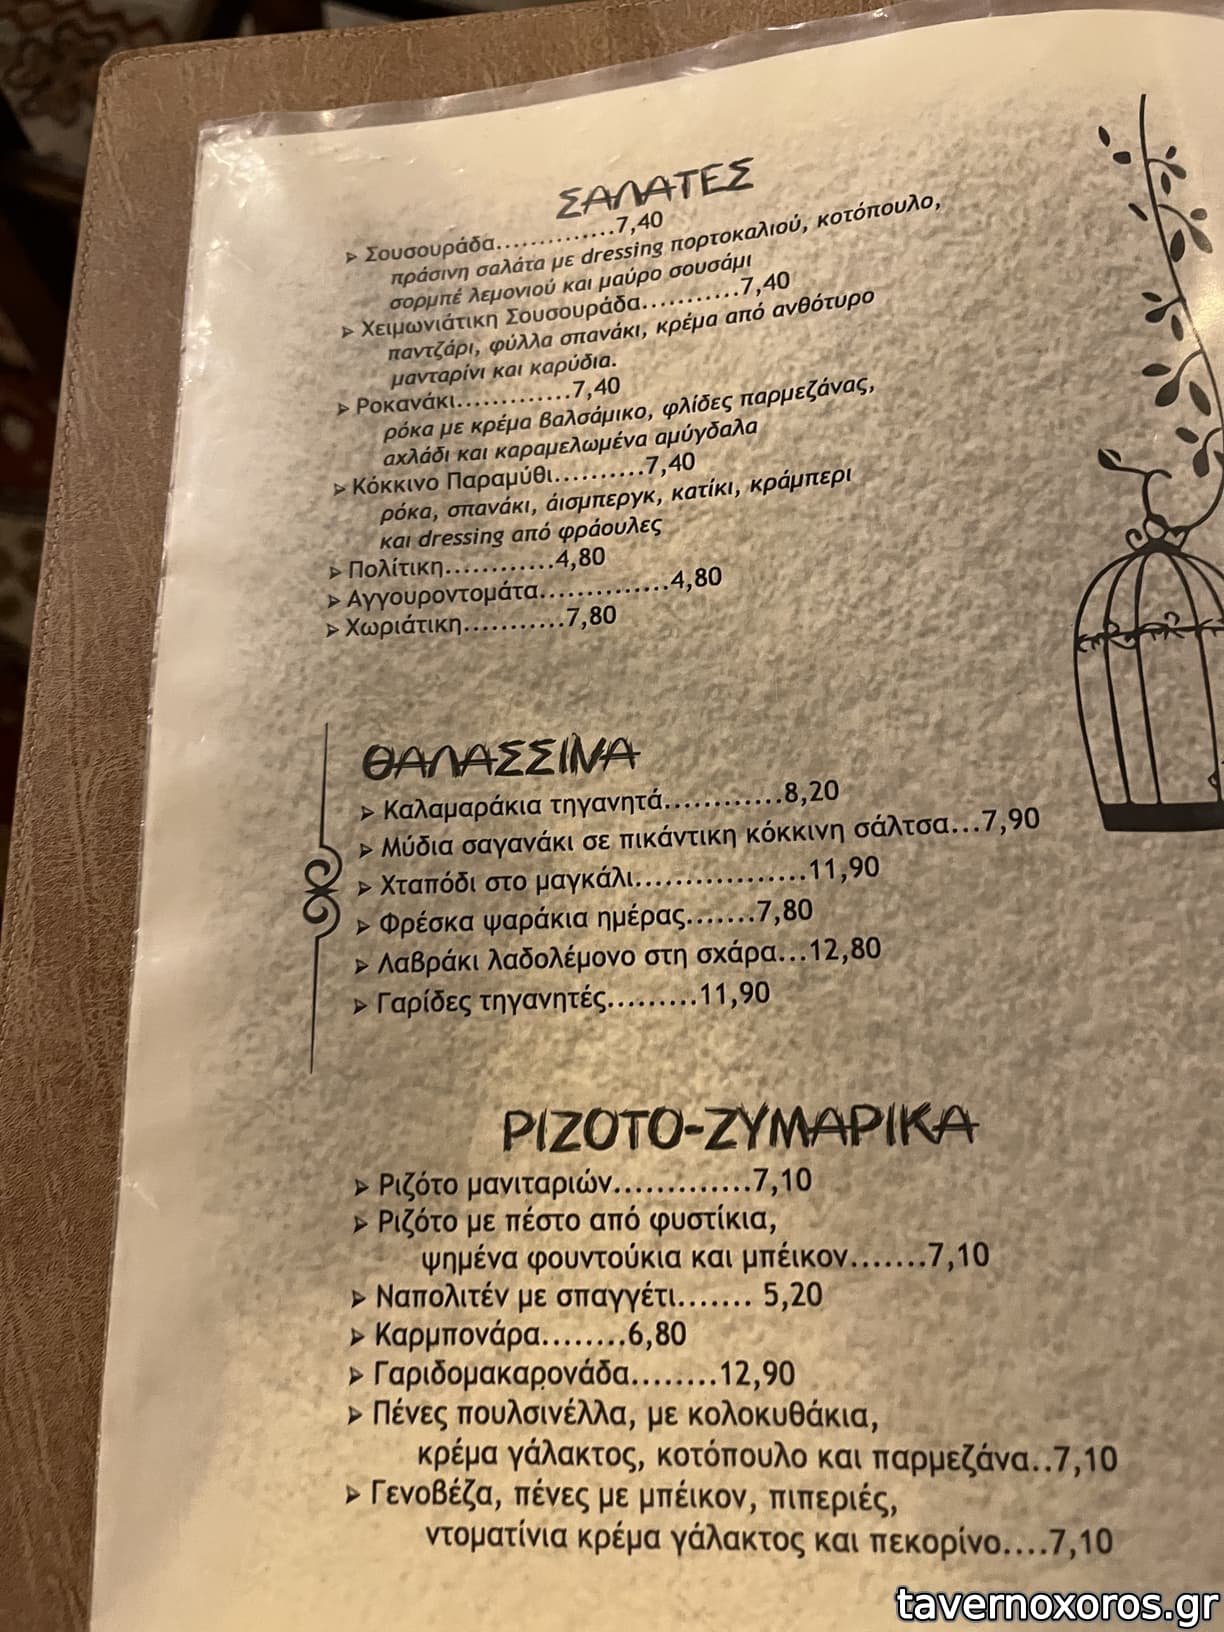 ΣΑΛΑΤΕΣ
➢ Σουσουράδα..............7,40
πράσινη σαλάτα με dressing πορτοκαλιού, κοτόπουλο,
σορμπέ λεμονιού και μαύρο σουσάμι
➢ Χειμωνιάτικη Σουσουράδα...........7,40
παντζάρι, φύλλα σπανάκι, κρέμα από ανθότυρο
μανταρίνι και καρύδια.
➢ Ροκανάκι.............7,40
ρόκα με κρέμα βαλσάμικο, φλίδες παρμεζάνας,
αχλάδι και καραμελωμένα αμύγδαλα
➢ Κόκκινο Παραμύθι..........7,40
ρόκα, σπανάκι, άισμπεργκ, κατίκι, κράμπερι
και dressing από φράουλες
➢ Πολίτικη............4,80
➢ Αγγουροντομάτα..............4,80
➢ Χωριάτικη...........7,80
ΘΑΛΑΣΣΙΝΑ
➢ Καλαμαράκια τηγανητά............8,20
➢ Μύδια σαγανάκι σε πικάντικη κόκκινη σάλτσα...7,90
➢ Χταπόδι στο μαγκάλι.................11,90
➢ Φρέσκα ψαράκια ημέρας.......7,80
➢ Λαβράκι λαδολέμονο στη σχάρα...12,80
➢ Γαρίδες τηγανητές.........11,90
ΡΙΖΟΤΟ-ΖΥΜΑΡΙΚΑ
➢ Ριζότο μανιταριών.............7,10
➢ Ριζότο με πέστο από φυστίκια,
ψημένα φουντούκια και μπέικον.......7,10
➢ Ναπολιτέν με σπαγγέτι....... 5,20
➢ Καρμπονάρα........6,80
➢ Γαριδομακαρονάδα........12,90
➢ Πένες πουλσινέλλα, με κολοκυθάκια,
κρέμα γάλακτος, κοτόπουλο και παρμεζάνα..7,10
➢ Γενοβέζα, πένες με μπέικον, πιπεριές,
ντοματίνια κρέμα γάλακτος και πεκορίνο....7,10
tavernoxoros.gr